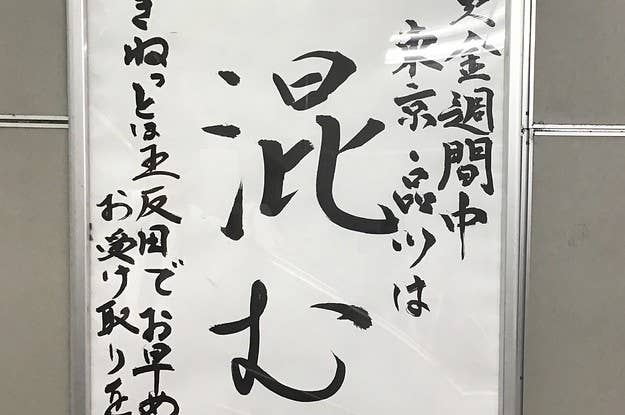 黄金週間中
東京 品川は
混む
きねっとは五反田でお早め
お受け取りを